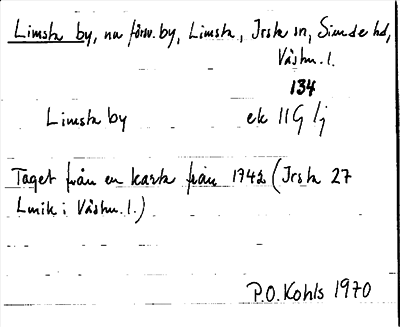 Limsta by, nu försv. by, Limsta, Irsta sn, Siende hd,
Västm. l.
134
Limsta by ek 11G
Taget från en karta från 1742 (Irsta 27
Lmk i Västm. l.)
P.O. Kohls 1970